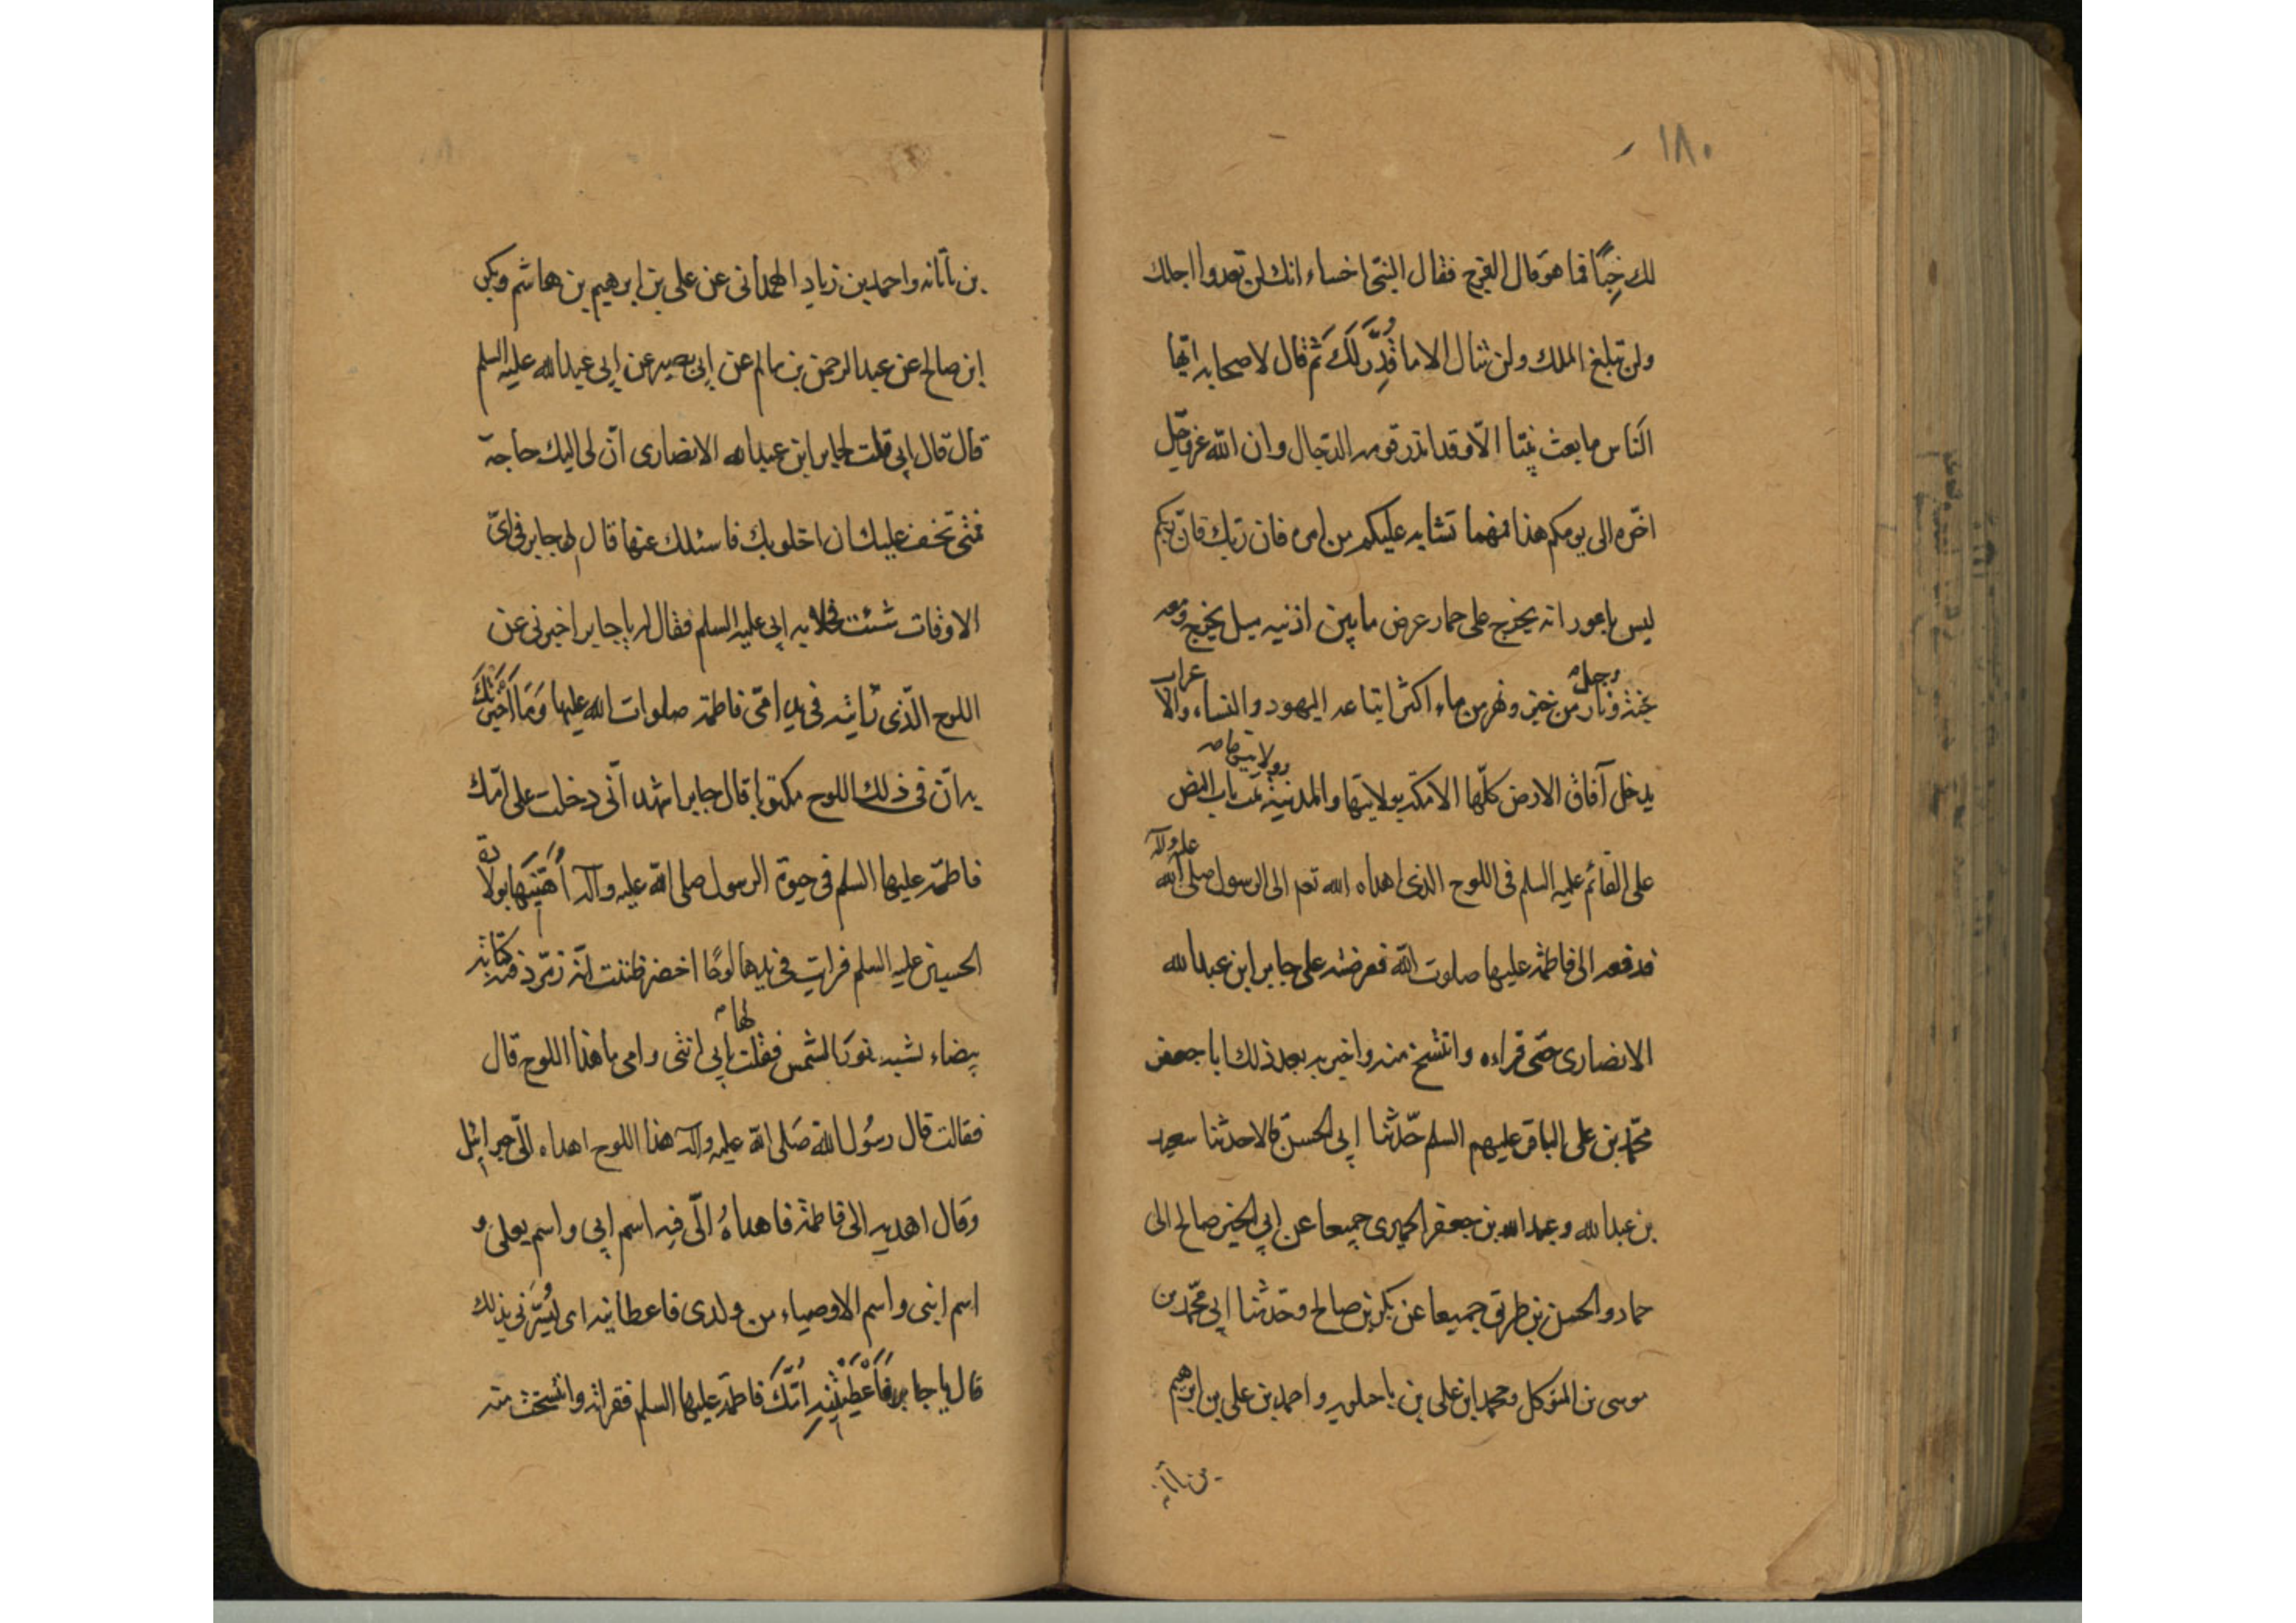 ١٨٠
لك خبئًا فما هو قال الفرخ فقال النبى اخساء انك لن تعدوا اجلك
ولن تبلغ الملك ولن تنال الا ما قُدِّرَ لَكَ ثم قال لاصحابه ايّها
الناس ما بعث نبيّا الّا وقد انذر قومه الدجال وان الله عز وجل
اخّره الى يومكم هذا فمهما تشابه عليكم من امره فان ربك فان ربكم
ليس باعور انه يخرج على حمار عرض ما بين اذنيه ميل يخرج ومعه
جنة ونار وجبل من خبز ونهر من ماء اكثر اتباعه اليهود والنساء والاعراب
يدخل آفاق الارض كلّها الا مكة ولابتيها والمدينة ولابتيها باب النص
على القائم عليه السلم فى اللوح الذى اهداه الله تعه الى الرسول صلى الله عليه وآله
فدفعه الى فاطمة عليها صلوت الله فعرضته على جابر ابن عبد الله
الانصارى حتى قراءه وانتسخ منه واخبر به بعد ذلك ابا جعفر
محمّد بن على الباقر عليهم السلم حدّثنا ابى الحسن قالا حدثنا سعيد
بن عبد الله وعبد الله بن جعفر الحميرى جميعا عن ابى الخير صالح الى
حماد والحسن بن طريق جميعا عن بكر بن صالح وحدثنا ابى محمّد بن
موسى بن المتوكل ومحمد ابن على بن باجلويه واحمد بن على بن ابرهيم
بن تاتانه
بن تاتانه واحمد بن زياد الهمدانى عن على بن ابرهيم بن هاشم وبكر
ابن صالح عن عبد الرحمن بن سالم عن ابى بصير عن ابى عبد الله عليه السلم
قال قال ابى قلت لجابر ابن عبد الله الانصارى انّ لى اليك حاجة
فمتى تخف عليك ان اخلو بك فاسئلك عنها قال لها جابر فى اىّ
الاوقات شئت فخلا به ابى عليه السلم فقال له يا جابر اخبرنى عن
اللوح الّذى رايته فى يد امّى فاطمة صلوات الله عليها وَمَا اَخْبَرَتْكَ
به انّ فى ذلك اللوح مكتوبا قال جابر اشهد انّى دخلت على امّك
فاطمة عليها السلم فى حيوة الرسول صلى الله عليه وآله اُهَنّيَهَا بولادة
الحسين عليه السلم فرايت فى يدها لوحًا اخضر ظننت انّه زمّرد فيه كتابة
بيضاء تشبه نور الشمس فقلت لها بابى انتى وامى ما هذا اللوح قال
فقالت قال رسُول الله صَلى الله عليه وآله هذا اللوح اهداه الىّ جبرائيل
وقال اهديه الى فاطمة فاهداهُ الىّ فيه اسم ابى واسم بعلى و
اسم ابنى واسم الاوصياء من ولدى فاعطانيه ابى ليُسِّرَنى بذلك
قال يا جابر فَاَعْطَتْنِيهِ اُمُّكَ فاطمة عليها السلم فقراته وانتسخت منه